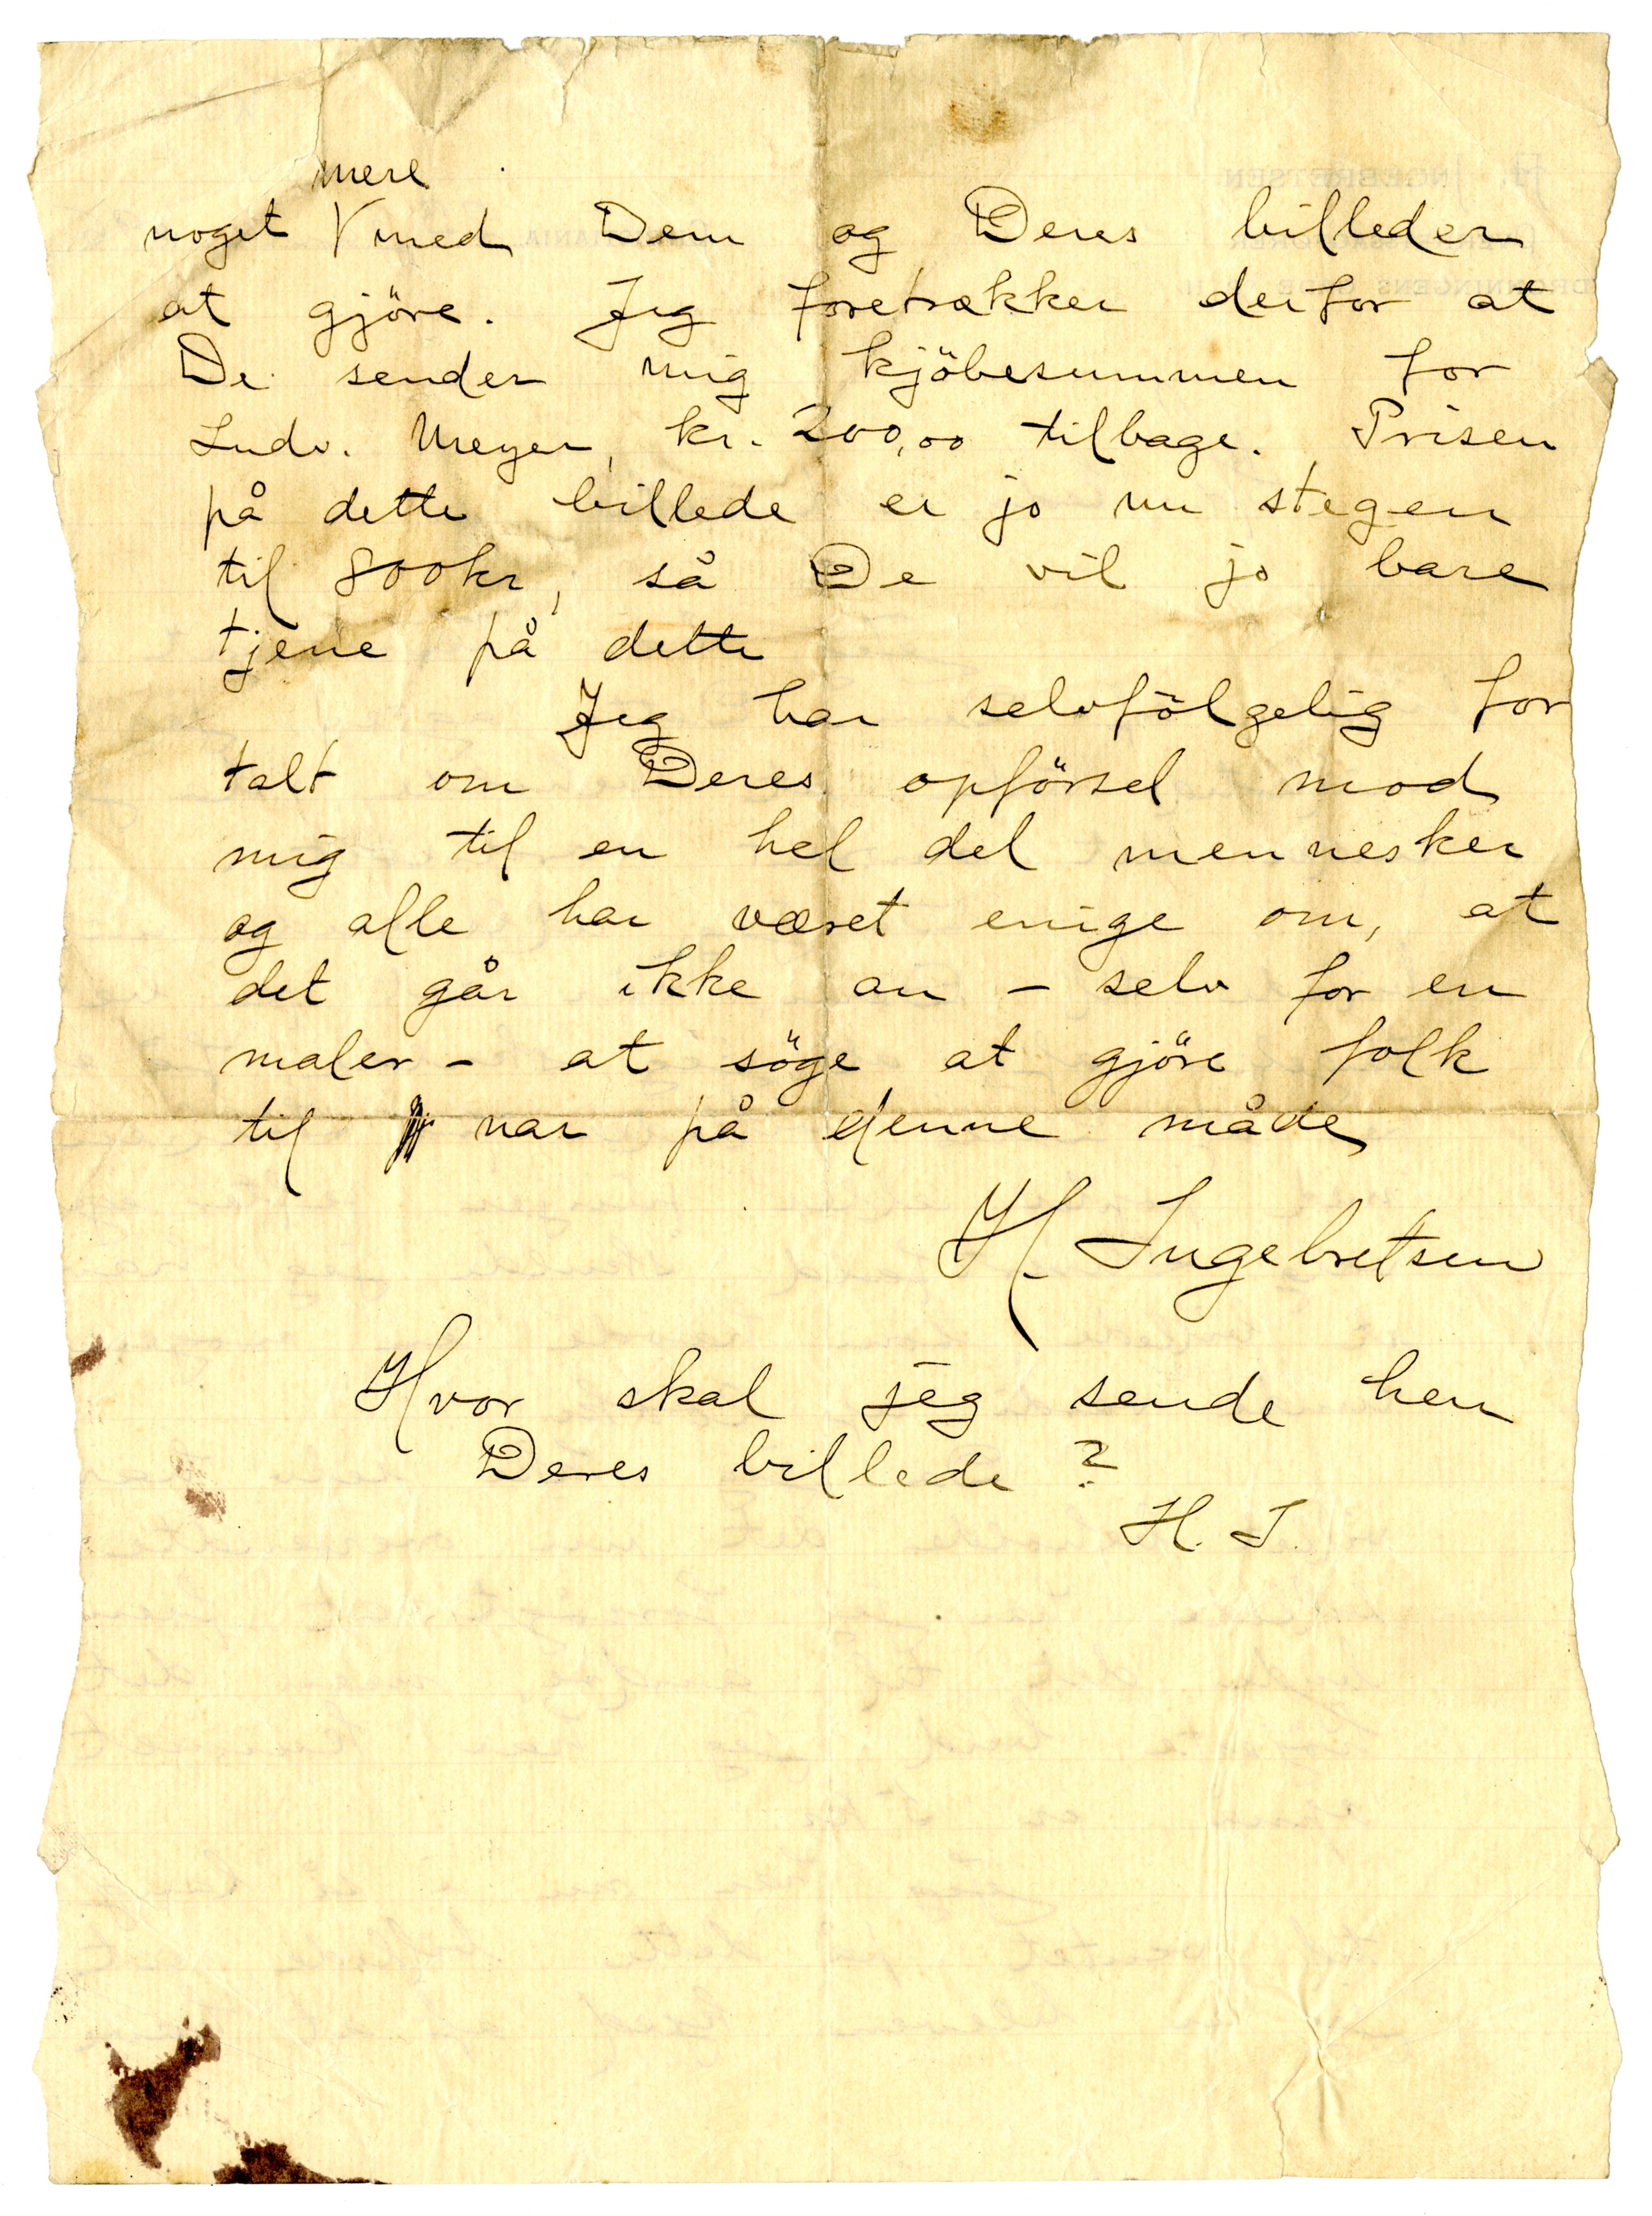 mere
noget V med Dem og Deres billeder
at gjöre. Jeg foretrækker derfor at
De sender mig kjöbesummen for
Ludv. Meyer, kr. 200,00 tilbage. Prisen
på dette billede er jo nu stegen
til 800kr, så De vil jo bare
tjene på dette
Jeg har selvfölgelig for
talt om Deres opförsel mod
mig til en hel del mennesker
og alle har været enige om, at
det går ikke an - selv for en
maler - at söge at gjöre folk
til nar på denne måde
H. Ingebretsen
Hvor skal jeg sende hen
Deres billede?
H. I.